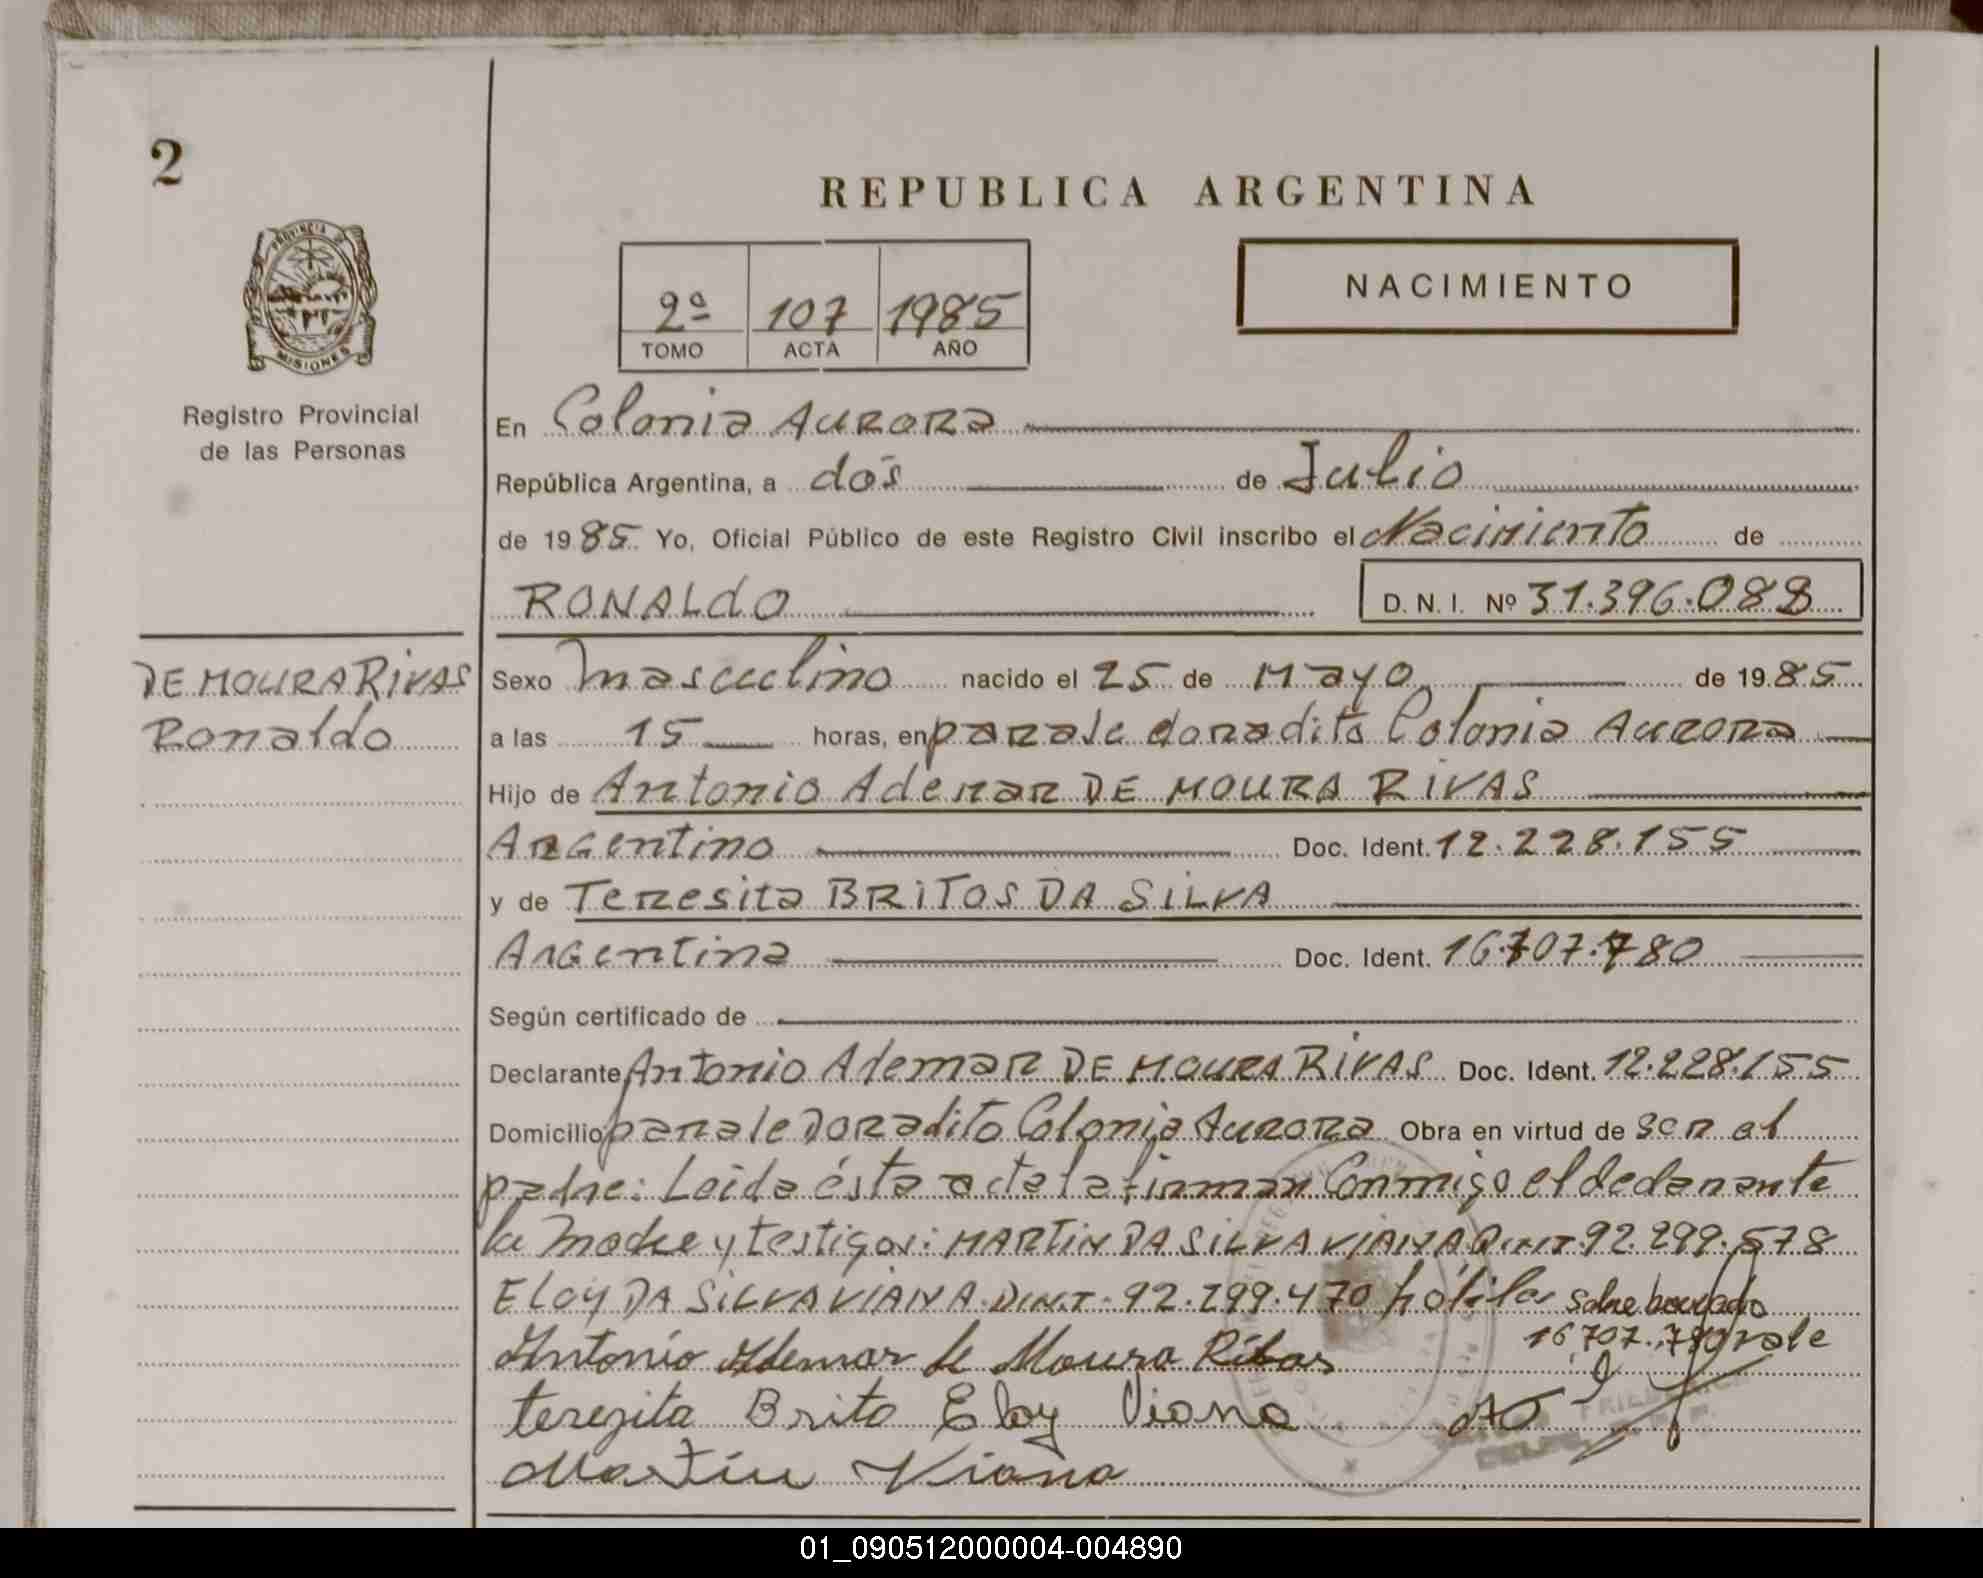 2
REPUBLICA ARGENTINA
PROVINCIA DE
MISIONES
Registro Provincial
de las Personas
2º 107 1985
TOMO ACTA AÑO
NACIMIENTO
En Colonia Aurora
República Argentina, a dos de Julio
de 1985 Yo, Oficial Público de este Registro Civil inscribo el Nacimiento de
RONALdO D. N. I. Nº 31.396.088
DE MOURA RiVAS
Ronaldo
Sexo masculino nacido el 25 de Mayo de 1985
a las 15 horas, en paraje doradito Colonia Aurora
Hijo de Antonio Ademar DE MOURA RIVAS
Argentino Doc. Ident. 12.228.155
y de Teresita BRITOS DA SILVA
Argentina Doc. Ident. 16.707.780
Según certificado de
Declarante Antonio Ademar DE MOURA RIVAS Doc. Ident. 12.228.155
Domicilio paraje Doradito Colonia Aurora Obra en virtud de ser el
padre: Leida ésta acta la firman Conmigo el declarante
la Madre y testigos: MARTIN DA SILVA VIANA D.N.T. 92.299.578
ELOY DA SILVA VIANA D.N.T. 92.299.470 hábiles sobre borrado
16.707.780 vale
Antonio Ademar de Moura Ribas
terezita Brito Eloy Viana
Martin Viana
01_090512000004-004890